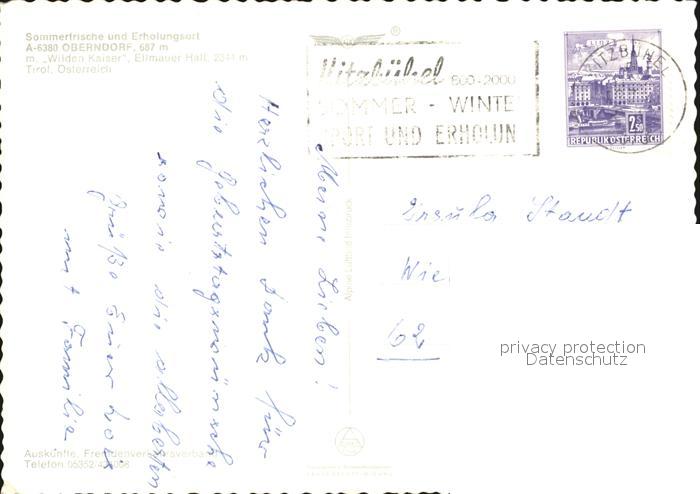 Sommerfrische und Erholungsort
A-6380 OBERNDORF, 687 m
m. „Wilden Kaiser", Ellmauer Halt, 2344 m
Tirol, Österreich
®
Kitzbühel 800-2000
SOMMER - WINTE
SPORT UND ERHOLUN
KITZBÜHEL
LINZ
2.50
REPUBLIK ÖSTERREICH
Meine Lieben!
Herzlichen Dank für
die Geburtstagswünsche
sowie die allerbesten
Grüße Euer
mit Familie
Alpine Luftbild Innsbruck
Ursula Staudt
Wie
62
privacy protection
Datenschutz
Auskünfte, Fremdenverkehrsverband
Telefon 05352/